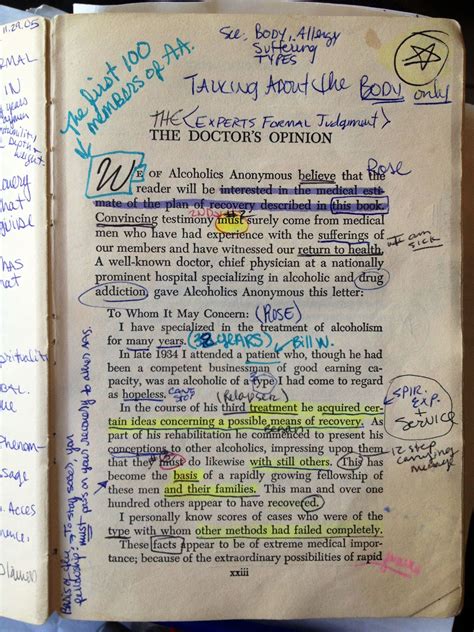 11.29.05
See: BODY, Allergy
Suffering
TYPES
The first 100
members of A.A.
TALKING About the BODY only
THE <EXPERTS FORMAL Judgment>
THE DOCTOR'S OPINION
Rose
WE OF Alcoholics Anonymous believe that the
reader will be interested in the medical esti-
mate of the plan of recovery described in this book.
Convincing testimony must surely come from medical
men who have had experience with the sufferings of
our members and have witnessed our return to health.
A well-known doctor, chief physician at a nationally
prominent hospital specializing in alcoholic and drug
addiction, gave Alcoholics Anonymous this letter:
To Whom It May Concern: (ROSE)
I have specialized in the treatment of alcoholism
for many years. (38 YEARS) Bill W.
In late 1934 I attended a patient who, though he had
been a competent businessman of good earning ca-
pacity, was an alcoholic of a type I had come to regard
as hopeless. (Relapser)
In the course of his third treatment he acquired cer-
tain ideas concerning a possible means of recovery. As
part of his rehabilitation he commenced to present his
conceptions to other alcoholics, impressing upon them
that they must do likewise with still others. This has
become the basis of a rapidly growing fellowship of
these men and their families. This man and over one
hundred others appear to have recovered.
I personally know scores of cases who were of the
type with whom other methods had failed completely.
These facts appear to be of extreme medical impor-
tance; because of the extraordinary possibilities of rapid
xxiii
SPIR.
EXP.
+
SERVICE
12 step
carrying
message
Basis of the fellowship: To stay sober, you
must pass on your recovery to other AAs.